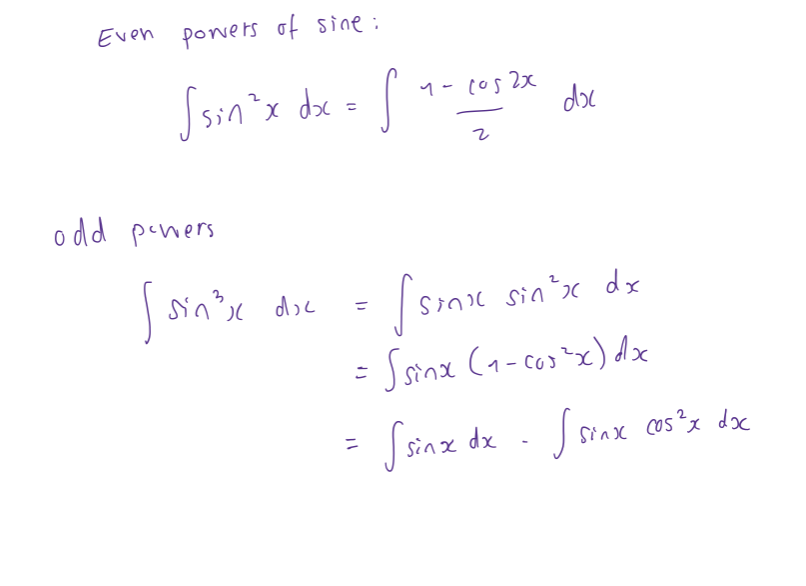 Even powers of sine:
∫sin²x dx = ∫ (1 - cos2x)/2 dx
odd powers
∫sin³x dx = ∫sinx sin²x dx
= ∫sinx (1-cos²x) dx
= ∫sinx dx - ∫sinx cos²x dx